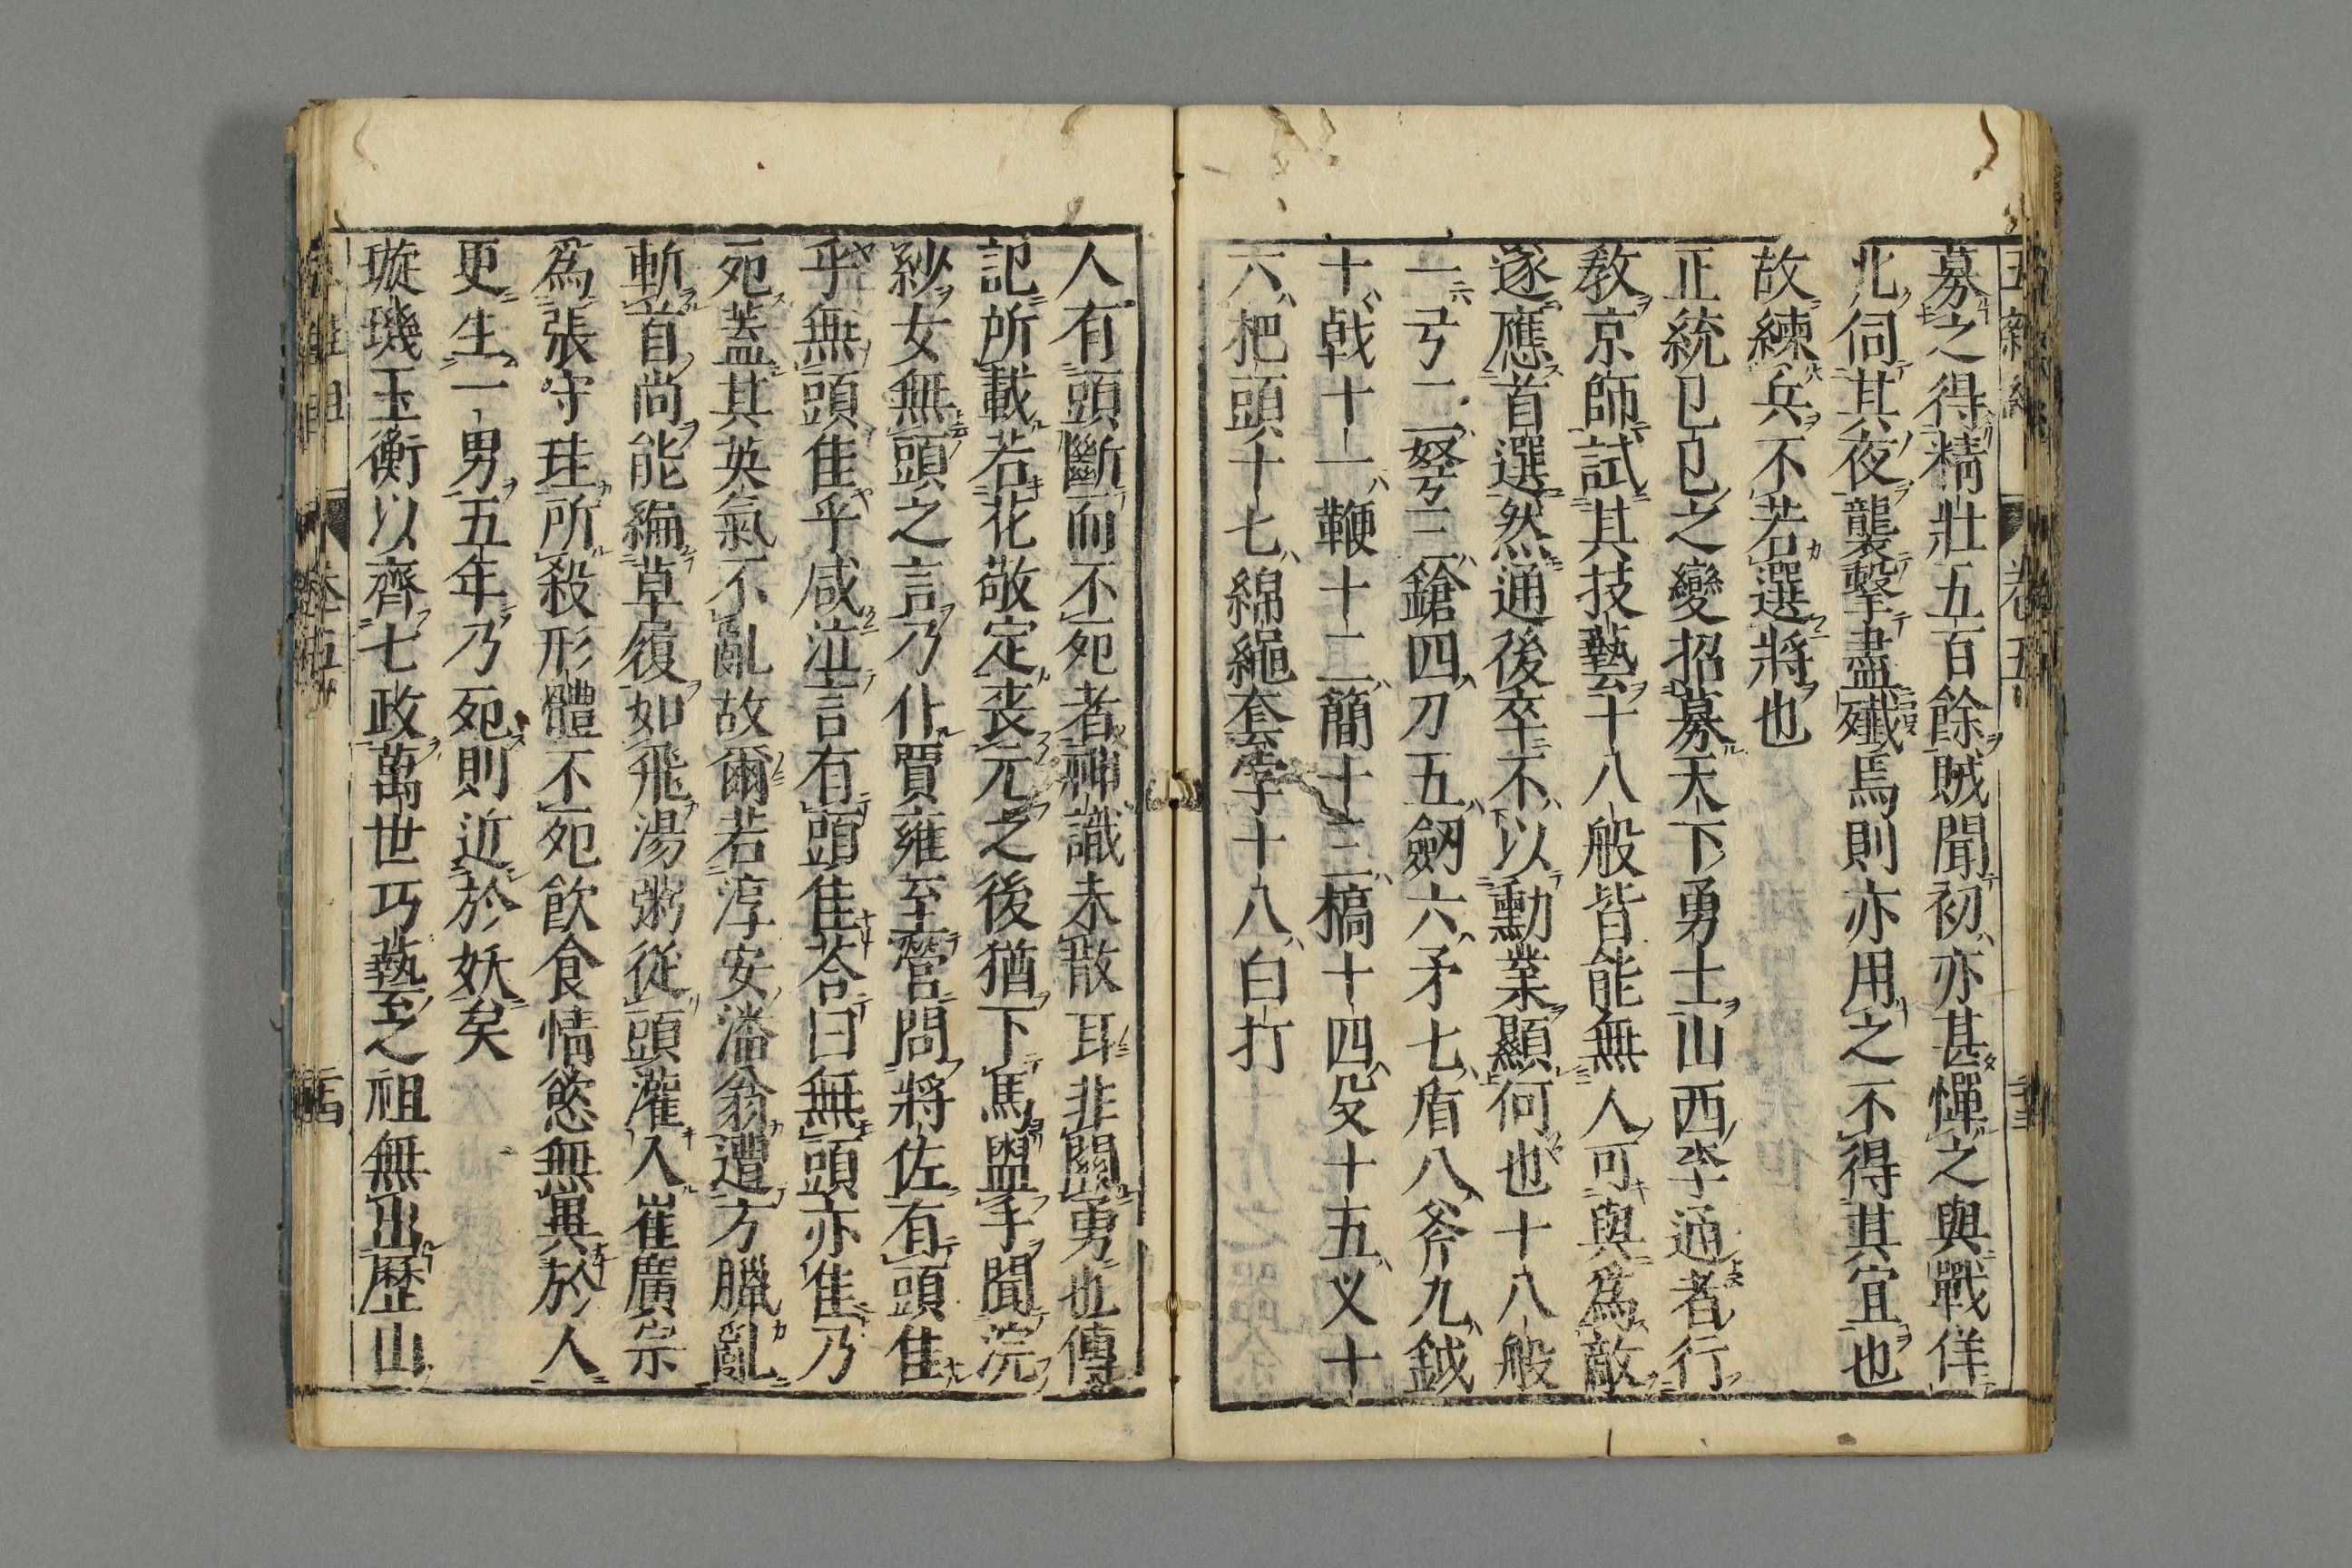 募之得精壯五百餘賊聞初亦甚憚之與戰佯
北伺其夜襲擊盡殲焉則亦用之不得其宜也
故練兵不若選將也
正統已巳之變招募天下勇士山西李通者行
教京師試其技藝十八般皆能無人可與爲敵
遂應首選然通後卒不以勳業顯何也十八般
一弓二弩三鎗四刀五劒六矛七盾八斧九鉞
十戟十一鞭十二簡十三槁十四殳十五义十
六把頭十七綿繩套索十八白打
人有頭斷而不死者神識未散耳非關勇也傳
記所載若花敬定喪元之後猶下馬盥手聞浣
紗女無頭之言乃仆賈雍至營問將佐有頭佳
乎無頭佳乎咸泣言有頭佳荅曰無頭亦佳乃
死蓋其英氣不亂故爾若淳安潘翁遭方臘亂
斬首尚能編草履如飛湯粥從頭灌入崔廣宗
爲張守珪所殺形體不死飲食情慾無異於人
更生一男五年乃死則近於妖矣
璇璣玉衡以齊七政萬世巧藝之祖無出歷山